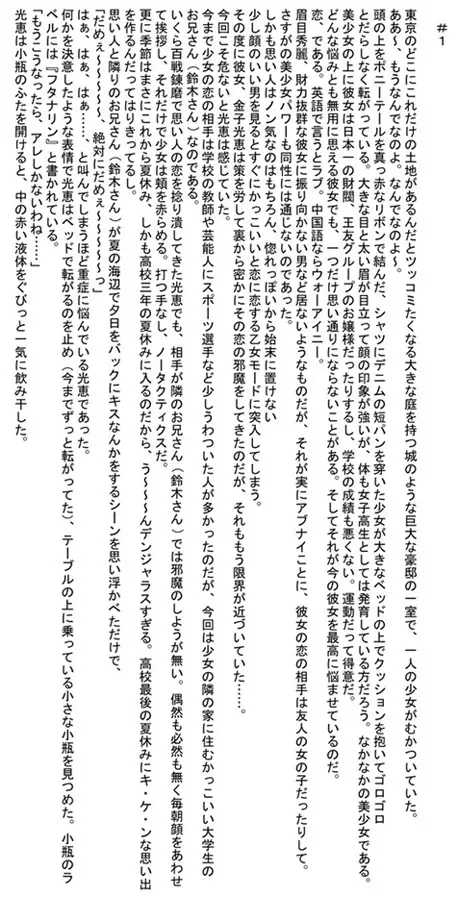 #1
東京のどこにこれだけの土地があるんだとツッコミたくなる大きな庭を持つ城のような巨大な豪邸の一室で、一人の少女がむかついていた。
ああ~、もうなんでなのよ。なんでなのよ~。
頭の上をポニーテールを真っ赤なリボンで結んだ、シャツにデニムの短パンを穿いた少女が大きなベッドの上でクッションを抱いてゴロゴロ
とだらしなく転がっている。大きな目と太い眉が目立って顔の印象が強いが、体も女子高生としては発育している方だろう。なかなかの美少女である。
美少女の上に彼女は日本一の財閥、王友グループのお嬢様だったりするし、学校の成績も悪くない。運動だって得意だ。
どんな悩みとも無用に思える彼女でも、一つだけ思い通りにならないことがある。そしてそれが今の彼女を最高に悩ませているのだ。
恋、である。英語で言うとラブ。中国語ならウォーアイニー。
眉目秀麗、財力抜群な彼女に振り向かない男など居ないようなものだが、それが実にアブナイことに、彼女の恋の相手は友人の女の子だったりして。
さすがの美少女パワーも同性には通じないのであった。
しかも思い人はノン気なのはもちろん、惚れっぽいから始末に置けない
少し顔のいい男を見るとすぐにかっこいいと恋に恋する乙女モードに突入してしまう。
その度に彼女、金子光恵は策を労して裏から密かにその恋の邪魔をしてきたのだが、それももう限界が近づいていた……。
今回こそ危ないと光恵は感じていた。
今まで少女の恋の相手は学校の教師や芸能人にスポーツ選手など少しうわついた人が多かったのだが、今回は少女の隣の家に住むかっこいい大学生の
お兄さん(鈴木さん)なのである。
いくら百戦錬磨で思い人の恋を捻り潰してきた光恵でも、相手が隣のお兄さん(鈴木さん)では邪魔のしようが無い。偶然も必然も無く毎朝顔をあわせ
て挨拶し、それだけで少女は頬を赤らめる。打つ手なし、ノータクティクスだ。
更に季節はまさにこれから夏休み、しかも高校三年の夏休みに入るのだから、う~~~んデンジャラスすぎる。高校最後の夏休みにキ・ケ・ンな思い出
を作るんだってはりきってるし。
思い人と隣りのお兄さん(鈴木さん)が夏の海辺で夕日をバックにキスなんかをするシーンを思い浮かべただけで、
「だめぇ~~~~~、絶対にだめぇ~~~~~っ」
はぁ、はぁ、はぁ……、と叫んでしまうほど重症に悩んでいる光恵であった。
何かを決意したような表情で光恵はベッドで転がるのを止め(今までずっと転がってた)、テーブルの上に乗っている小さな小瓶を見つめた。小瓶のラ
ベルには『フタナリン』と書かれている。
「もうこうなったら、アレしかないわね……」
光恵は小瓶のふたを開けると、中の赤い液体をぐびっと一気に飲み干した。